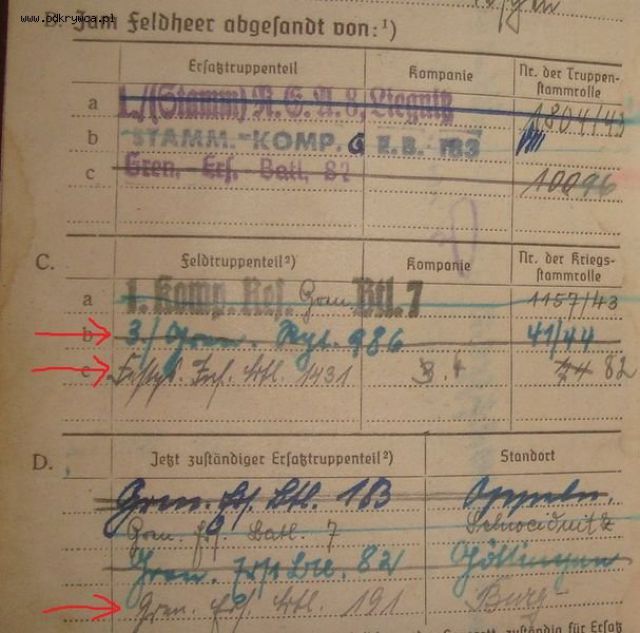 www.odkrywca.pl
ſſen
B. Zum Feldheer abgeſandt von:¹)
Erſatztruppenteil Kompanie Nr. der Truppen-
ſtammrolle
a 1./(Stamm) R. E. A. 8, Liegnitz 1804/43
b STAMM.-KOMP. G E.B. 183
c Gren.-Erſ.-Batl. 82 10096
C. Feldtruppenteil²) Kompanie Nr. der Kriegs-
ſtammrolle
a 1. Komp. Reſ. Gren Btl. 7 1157/43
b 3./Gren. Rgt. 986 41/44
c Inf. Btl. 1431 3. 4 24 82
D. Jetzt zuſtändiger Erſatztruppenteil²) Standort
Gren. Erſ. Btl. 183 Oppeln.
Gren. Erſ Batl. 7 Schweidnitz
Gren. Erſ. Btl. 82 Göttingen
Gren. Erſ. Btl. 191 Burg
zuſtändig für Erſatz